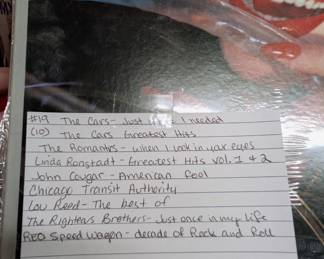 THE ROMAN
#19 The Cars- Just I needed
(10) The Cars Greatest Hits
The Romantics - when I look in your eyes
Linda Ronstadt - Greatest Hits vol. 1 & 2
John Cougar - American fool
Chicago Transit Authority
Lou Reed - The best of
The Righteous Brothers - Just once in my life
REO Speed Wagon - decade of Rock and Roll